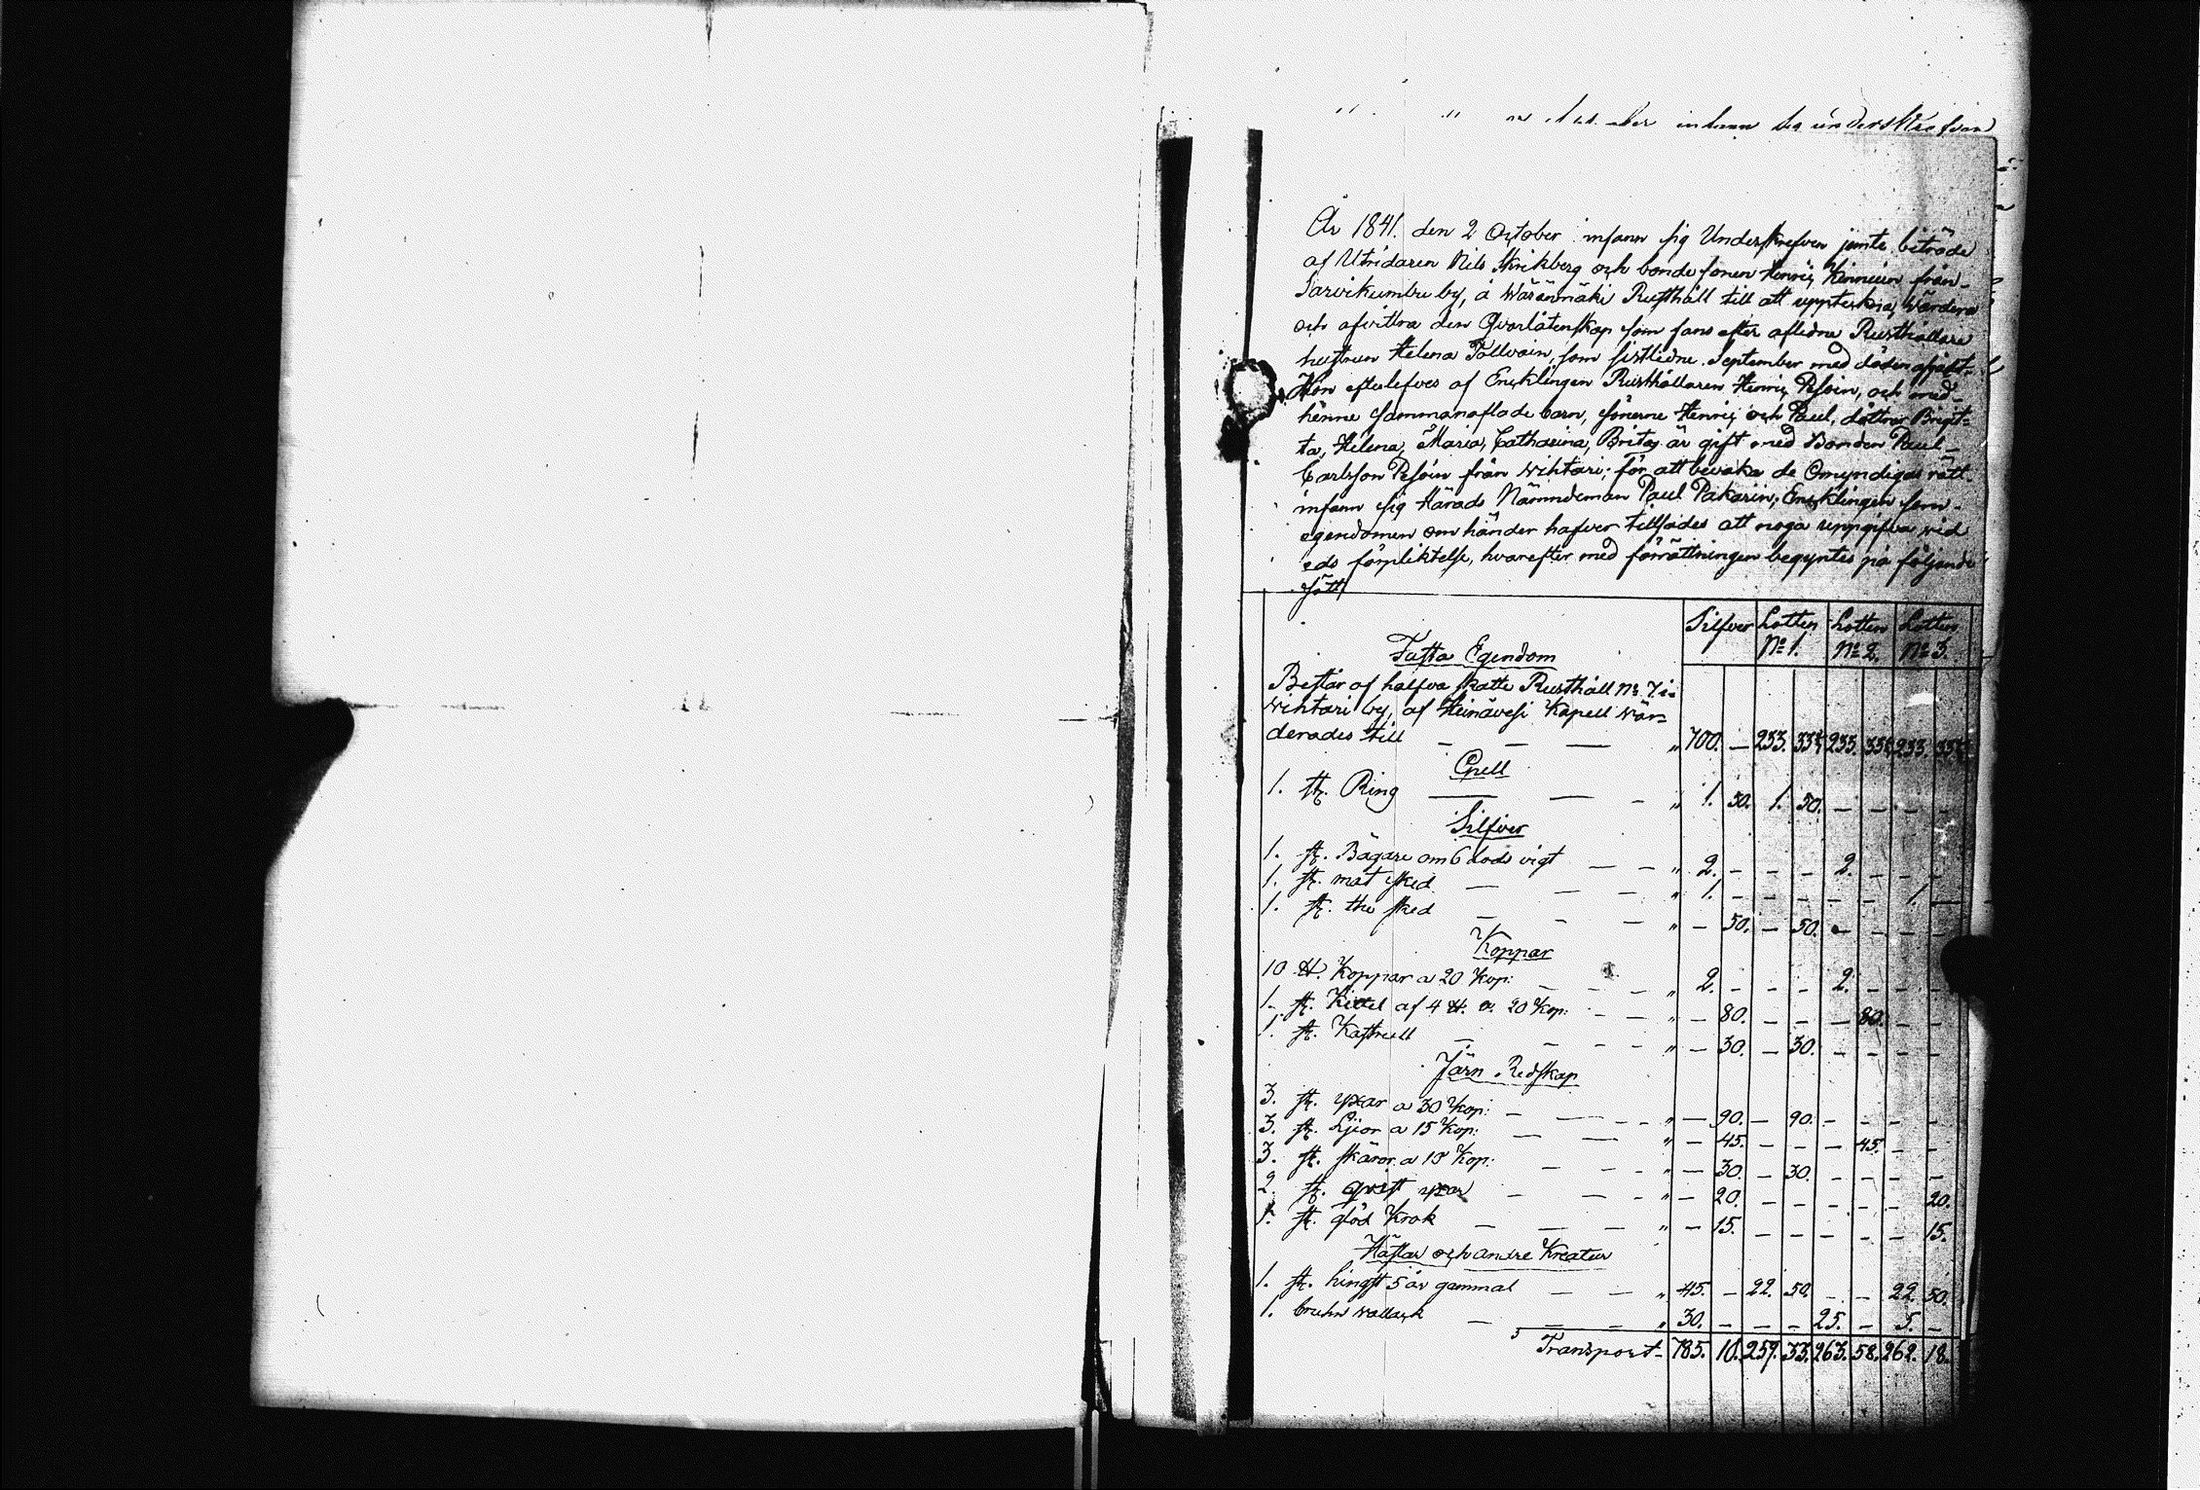 År 1841. den 2 October infann sig Underskrefven jemte biträde
af Utridaren Nils Skrikberg och bonde sonen Henric Kinnuin från
Sarvikumbu by, á Wäränmäki Rusthåll till att uppteckna, Wärdera
och afvittra den Qvarlåtenskap som fans efter aflidne Rusthållare
hustrun Helena Tollvain, som sistlidne September med döden afgått.
Hon efterlefves af Encklingen Rusthållaren Henric Pesoin, och med
henne sammanaflade barn, sönerne Henric och Paul, döttrar Brigit-
ta, Helena, Maria, Catharina, Brita är gift med Bonden Paul
Carlsson Pesoin från Wihtari; för att bevaka de Omyndigas rätt
infann sig Härads Nämndeman Paul Pakarin; Encklingen som
egendomen om händer hafver tillsades att noga uppgifva vid
eds förpliktelse, hvarefter med förrättningen begyntes på följande
sätt
Silfver Lotten Lotten Lotten
No 1. No 2. No 3.
Fasta Egendom
Består af halfva skatte Rusthåll No 7 i
Wihtari by, af Heinävesi Kapell Wär-
derades till — — — " 700. — 233. 33⅓ 233. 33⅓ 233. 33⅓
Gull
1. st. Ring — — — " 1. 50. 1. 50. — — — —
Silfver
1. st. Bägare om 6 lods vigt — — " 2. — — — 2. — — —
1. st. mat sked — — — " 1. — — — — — 1. —
1. st. the sked — — — " — 50. — 50. — — — —
Koppar
10 ℔. Koppar a 20 Kop: — — — " 2. — — — 2. — — —
1. st. Kittel af 4 ℔. a 20 Kop: — — " — 80. — — — 80. — —
1. st. Kastrull — — — — " — 30. — 30. — — — —
Järn Redskap
3. st. yxar a 30 Kop: — — — — " — 90. — 90. — — — —
3. st. Ljior a 15 Kop: — — " — 45. — — — 45. — —
3. st. skäror a 10 Kop: — — — " — 30. — 30. — — — —
2. st. qvist yxar — — — " — 20. — — — — — 20.
1. st. glöd Krok — — — " — 15. — — — — — 15.
Hästar och andre Kreatur
1. st. hingst 5 år gammal — — " 45. — 22. 50. — — 22. 50.
1. bruhn Wallack — — — " 30. — — — 25. — 5. —
Transport 785. 10. 259. 33. 263. 58. 262. 18.